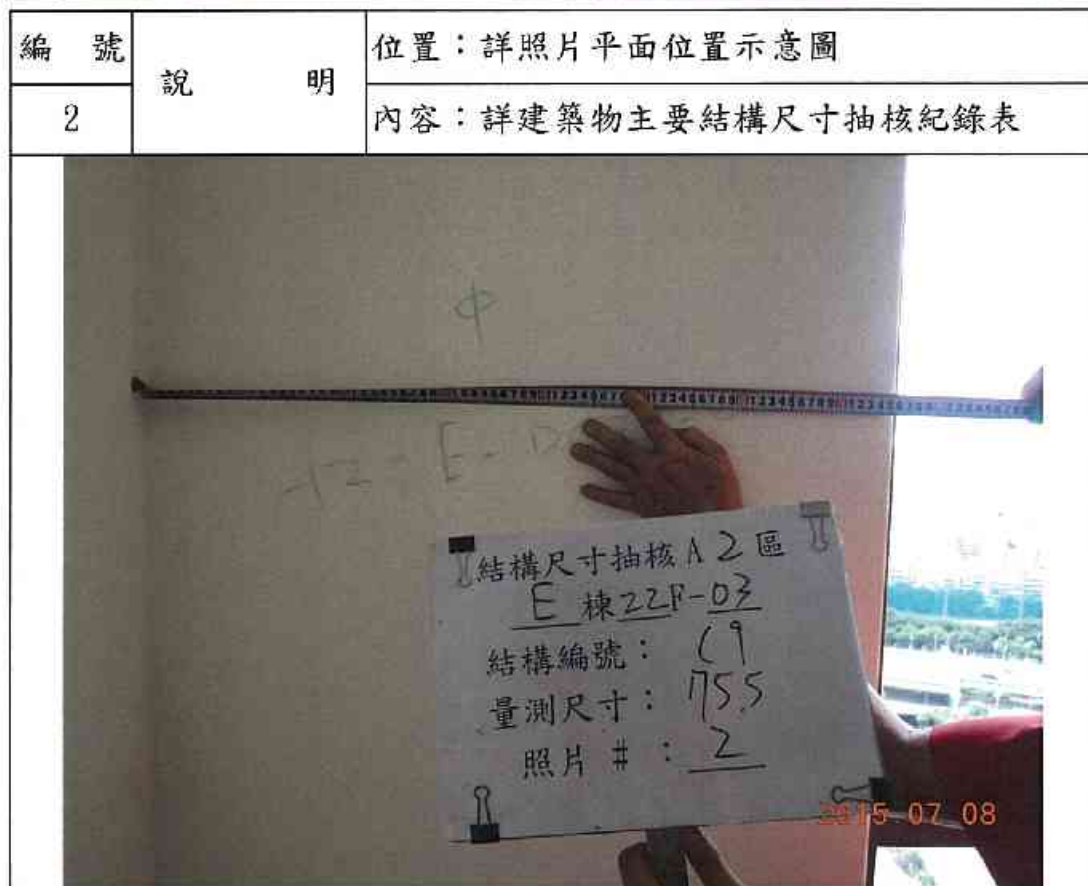 編 號
2
說 明
位置：詳照片平面位置示意圖
內容：詳建築物主要結構尺寸抽核紀錄表
中
E-D
結構尺寸抽核A2區
E棟22F-03
結構編號：C9
量測尺寸：175.5
照片 #：2
2015 07 08